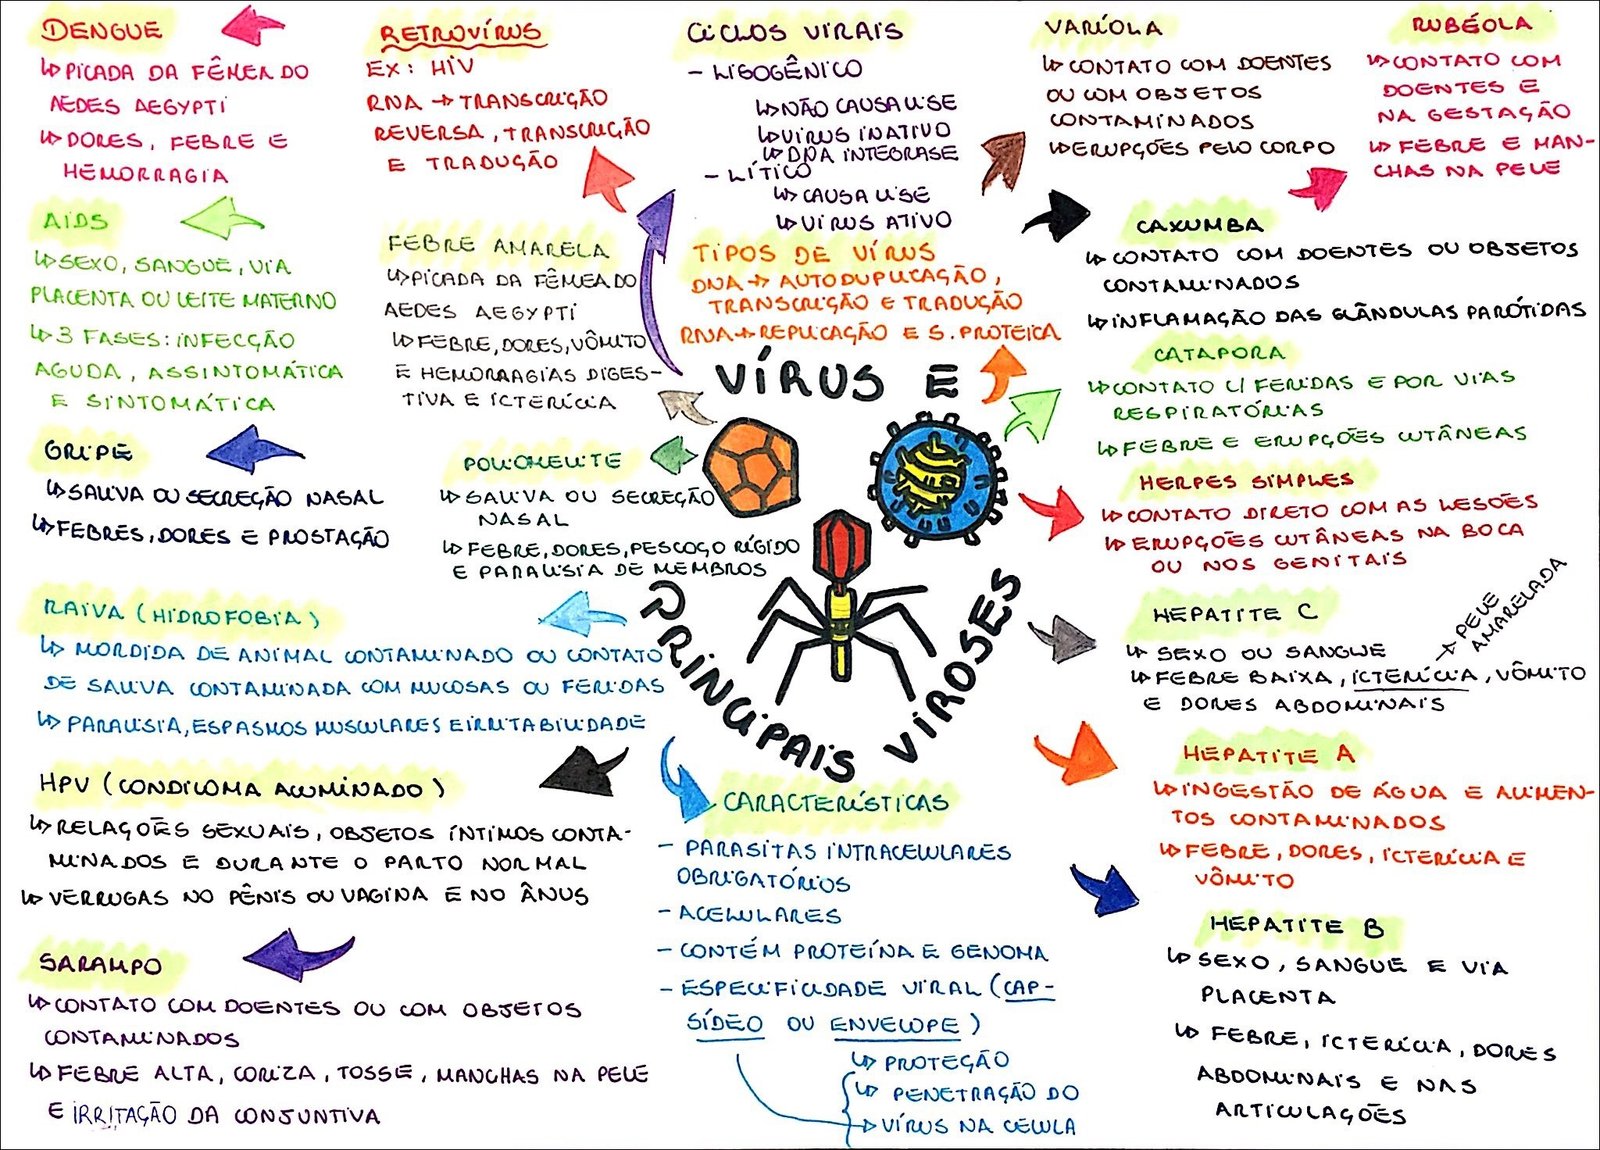 VÍRUS E
PRINCIPAIS VIROSES
DENGUE
↳ PICADA DA FÊMEA DO
AEDES AEGYPTI
↳ DORES, FEBRE E
HEMORRAGIA
AIDS
↳ SEXO, SANGUE, VIA
PLACENTA OU LEITE MATERNO
↳ 3 FASES: INFECÇÃO
AGUDA, ASSINTOMÁTICA
E SINTOMÁTICA
GRIPE
↳ SALIVA OU SECREÇÃO NASAL
↳ FEBRES, DORES E PROSTAÇÃO
RAIVA (HIDROFOBIA)
↳ MORDIDA DE ANIMAL CONTAMINADO OU CONTATO
DE SALIVA CONTAMINADA COM MUCOSAS OU FERIDAS
↳ PARALISIA, ESPASMOS MUSCULARES E IRRITABILIDADE
HPV (CONDILOMA ACUMINADO)
↳ RELAÇÕES SEXUAIS, OBJETOS ÍNTIMOS CONTA-
MINADOS E DURANTE O PARTO NORMAL
↳ VERRUGAS NO PÊNIS OU VAGINA E NO ÂNUS
SARAMPO
↳ CONTATO COM DOENTES OU COM OBJETOS
CONTAMINADOS
↳ FEBRE ALTA, CORIZA, TOSSE, MANCHAS NA PELE
E IRRITAÇÃO DA CONJUNTIVA
RETROVÍRUS
EX: HIV
RNA → TRANSCRIÇÃO
REVERSA, TRANSCRIÇÃO
E TRADUÇÃO
FEBRE AMARELA
↳ PICADA DA FÊMEA DO
AEDES AEGYPTI
↳ FEBRE, DORES, VÔMITO
E HEMORRAGIAS DIGES-
TIVA E ICTERÍCIA
POLIOMELITE
↳ SALIVA OU SECREÇÃO
NASAL
↳ FEBRE, DORES, PESCOÇO RÍGIDO
E PARALISIA DE MEMBROS
CICLOS VIRAIS
- LISOGÊNICO
↳ NÃO CAUSA LISE
↳ VÍRUS INATIVO
↳ DNA INTEGRASE
- LÍTICO
↳ CAUSA LISE
↳ VÍRUS ATIVO
TIPOS DE VÍRUS
DNA → AUTODUPLICAÇÃO,
TRANSCRIÇÃO E TRADUÇÃO
RNA → REPLICAÇÃO E S. PROTEICA
CARACTERÍSTICAS
- PARASITAS INTRACELULARES
OBRIGATÓRIOS
- ACELULARES
- CONTÉM PROTEÍNA E GENOMA
- ESPECIFICIDADE VIRAL (CAP-
SÍDEO OU ENVELOPE)
↳ PROTEÇÃO
↳ PENETRAÇÃO DO
VÍRUS NA CÉLULA
VARÍOLA
↳ CONTATO COM DOENTES
OU COM OBJETOS
CONTAMINADOS
↳ ERUPÇÕES PELO CORPO
RUBÉOLA
↳ CONTATO COM
DOENTES E
NA GESTAÇÃO
↳ FEBRE E MAN-
CHAS NA PELE
CAXUMBA
↳ CONTATO COM DOENTES OU OBJETOS
CONTAMINADOS
↳ INFLAMAÇÃO DAS GLÂNDULAS PARÓTIDAS
CATAPORA
↳ CONTATO C/ FERIDAS E POR VIAS
RESPIRATÓRIAS
↳ FEBRE E ERUPÇÕES CUTÂNEAS
HERPES SIMPLES
↳ CONTATO DIRETO COM AS LESÕES
↳ ERUPÇÕES CUTÂNEAS NA BOCA
OU NOS GENITAIS
HEPATITE C
↳ SEXO OU SANGUE
↳ FEBRE BAIXA, ICTERÍCIA, VÔMITO
E DORES ABDOMINAIS
→ PELE
AMARELADA
HEPATITE A
↳ INGESTÃO DE ÁGUA E ALIMEN-
TOS CONTAMINADOS
↳ FEBRE, DORES, ICTERÍCIA E
VÔMITO
HEPATITE B
↳ SEXO, SANGUE E VIA
PLACENTA
↳ FEBRE, ICTERÍCIA, DORES
ABDOMINAIS E NAS
ARTICULAÇÕES